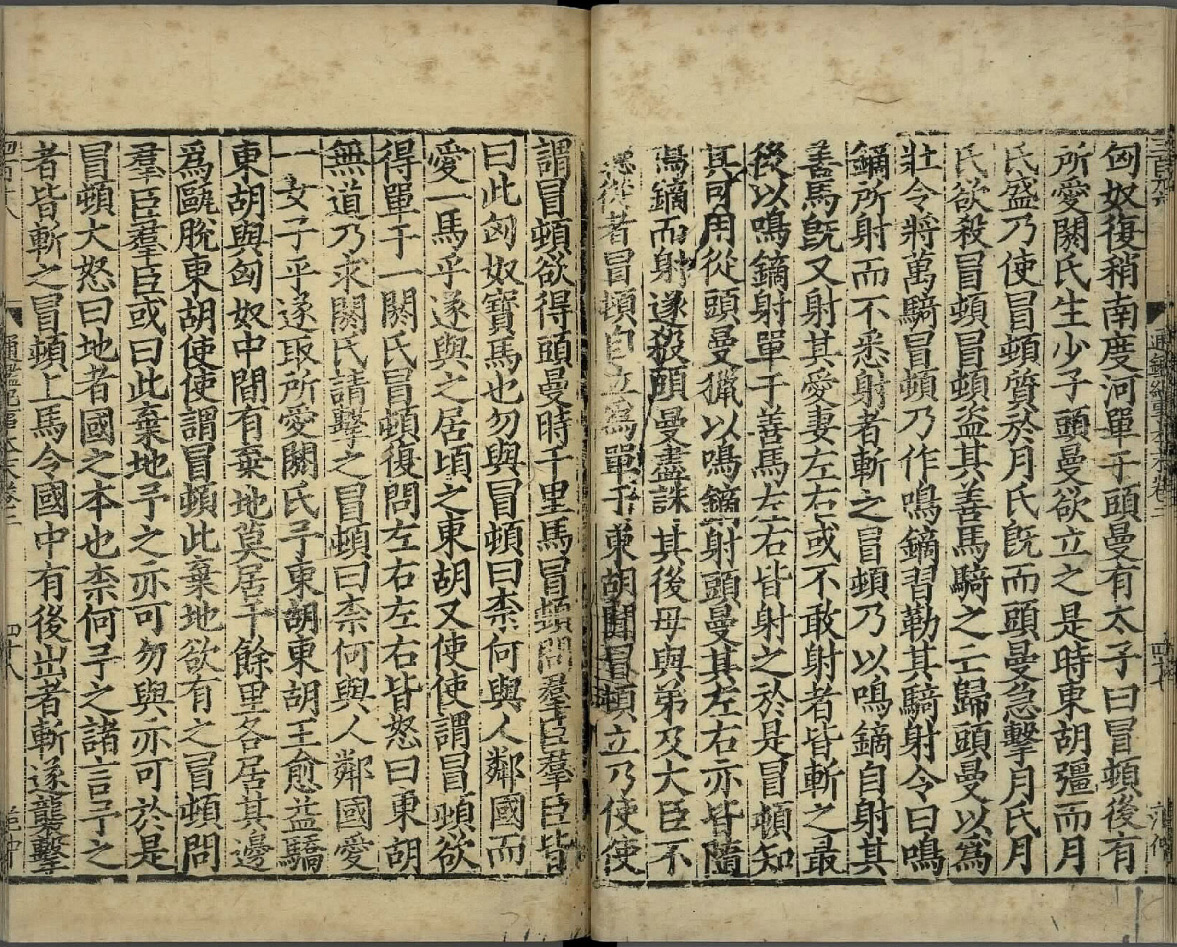 匈奴復稍南度河單于頭曼有太子曰冒頓後有
所愛閼氏生少子頭曼欲立之是時東胡彊而月
氏盛乃使冒頓質於月氏旣而頭曼急擊月氏月
氏欲殺冒頓冒頓盗其善馬騎之亡歸頭曼以爲
壯令將萬騎冒頓乃作鳴鏑習勒其騎射令曰鳴
鏑所射而不悉射者斬之冒頓乃以鳴鏑自射其
善馬旣又射其愛妻左右或不敢射者皆斬之最
後以鳴鏑射單于善馬左右皆射之於是冒頓知
其可用從頭曼獵以鳴鏑射頭曼其左右亦皆隨
鳴鏑而射遂殺頭曼盡誅其後母與弟及大臣不
聽從者冒頓自立爲單于東胡聞冒頓立乃使使
謂冒頓欲得頭曼時千里馬冒頓問羣臣羣臣皆
曰此匈奴寶馬也勿與冒頓曰柰何與人鄰國而
愛一馬乎遂與之居頃之東胡又使使謂冒頓欲
得單于一閼氏冒頓復問左右左右皆怒曰東胡
無道乃求閼氏請擊之冒頓曰柰何與人鄰國愛
一女子乎遂取所愛閼氏予東胡東胡王愈益驕
東胡與匈奴中間有棄地莫居千餘里各居其邊
爲甌脫東胡使使謂冒頓此棄地欲有之冒頓問
羣臣羣臣或曰此棄地予之亦可勿與亦可於是
冒頓大怒曰地者國之本也柰何予之諸言予之
者皆斬之冒頓上馬令國中有後出者斬遂襲擊
通鑑紀事本末卷二
四十八